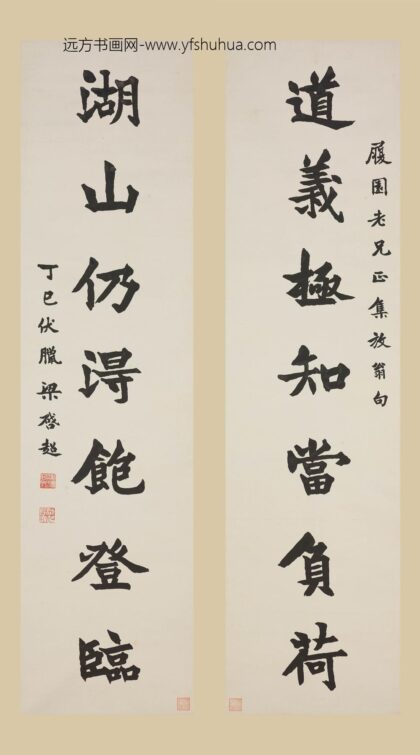 远方书画网-www.yfshuhua.com
履園老兄正集放翁句
道義極知當負荷
湖山仍得飽登臨
丁巳伏臘梁啓超